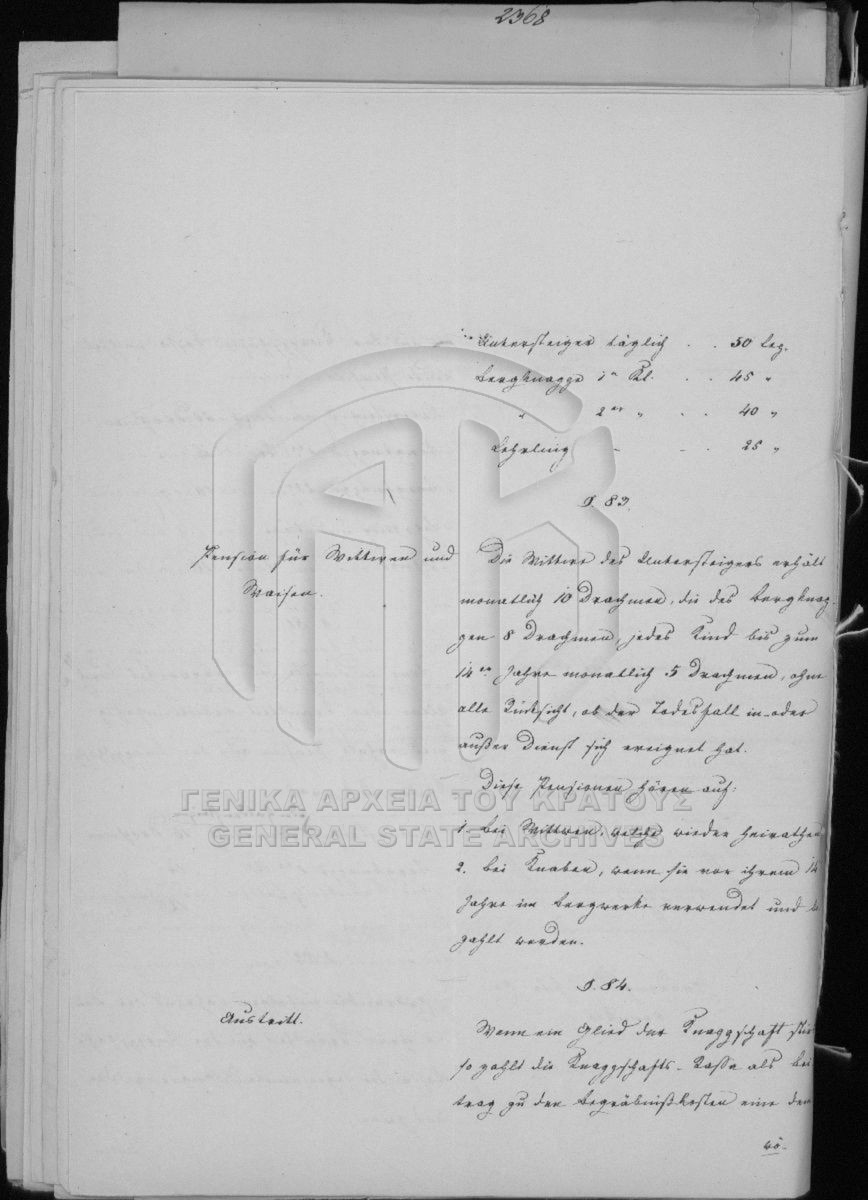 2368
Untersteiger täglich . . 50 Lep.
Bergknappe 1r Kl. . . 45 "
" 2er " . . 40 "
Lehrling - - . 25 "
§. 83.
Pension für Wittwen und
Waisen.
Die Wittwe des Untersteigers erhält
monatlich 10 Drachmen, die des Bergknap-
pen 8 Drachmen, jedes Kind bis zum
14en Jahre monatlich 5 Drachmen, ohne
alle Rücksicht, ob der Todesfall in- oder
außer Dienst sich ereignet hat.
Diese Pensionen hören auf:
1. bei Wittwen, welche wieder heirathen
2. bei Knaben, wenn sie vor ihrem 14
Jahre im Bergwerke verwendet und be
zahlt werden.
§. 84.
Austritt.
Wenn ein Glied der Knappschaft stir
so zahlt die Knappschafts-Kassa als Bei
trag zu den Begräbnißkosten eine dem
wö-
ΓΕΝΙΚΑ ΑΡΧΕΙΑ ΤΟΥ ΚΡΑΤΟΥΣ
GENERAL STATE ARCHIVES